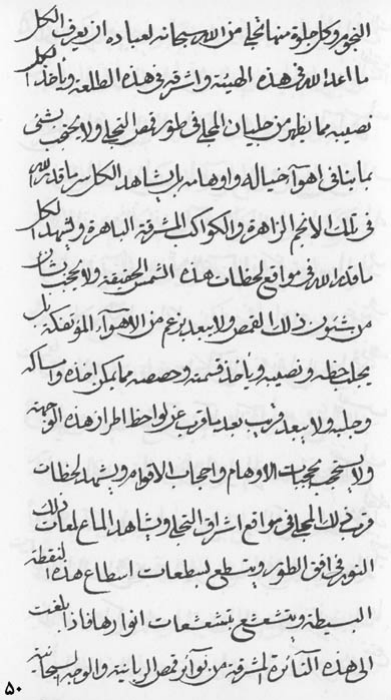 النجوم وكل جلوة منها تجلى من الله سبحانه لعباده ان يعرف الكل
ما اعد الله فى هذه الهيئة واشرقه فى هذه الطلعة وياخذ الكل
نصيبه مما يظهر من المجلى فى طور قمص التجلى ولا يحتجب بشئ
فى اهوآء خياله واوهامه بل يشاهد الكل سر ما قدر الله
فى تلك الانجم الزاهرة والكواكب المشرقة الباهرة وليشهد الكل
ما قدر الله فى مواقع لحظات هذه الشمس الحقيقة ولا يحتجب بشأن
من شئون ذلك القمص ولا يبعد بزعم من الاهوآء المؤتفكة بل
حظه ونصيبه وياخذ قسمته وحصصه مما يمكن اخذه وامساكه
ولا يبعد قريب بعد ما قرب عن لواحظ اطراز هذه الوجهة
ولا يستحجب بحجبات الاوهام واحجاب الاقوام ويشهد لحظات
قرب ذلك المجلى فى مواقع اشراق التجلى ويشاهد الماع لمعات ذلك
النور فى افق الطور ويستطع بسطعات اسطاع هذه النقطة
البسيطة ويتشعشع بتشعشعات انوارها فاذا بلغت
الى هذه النآئرة المشرقة من قمص الربانية والوجهة السبحانية
۵۰